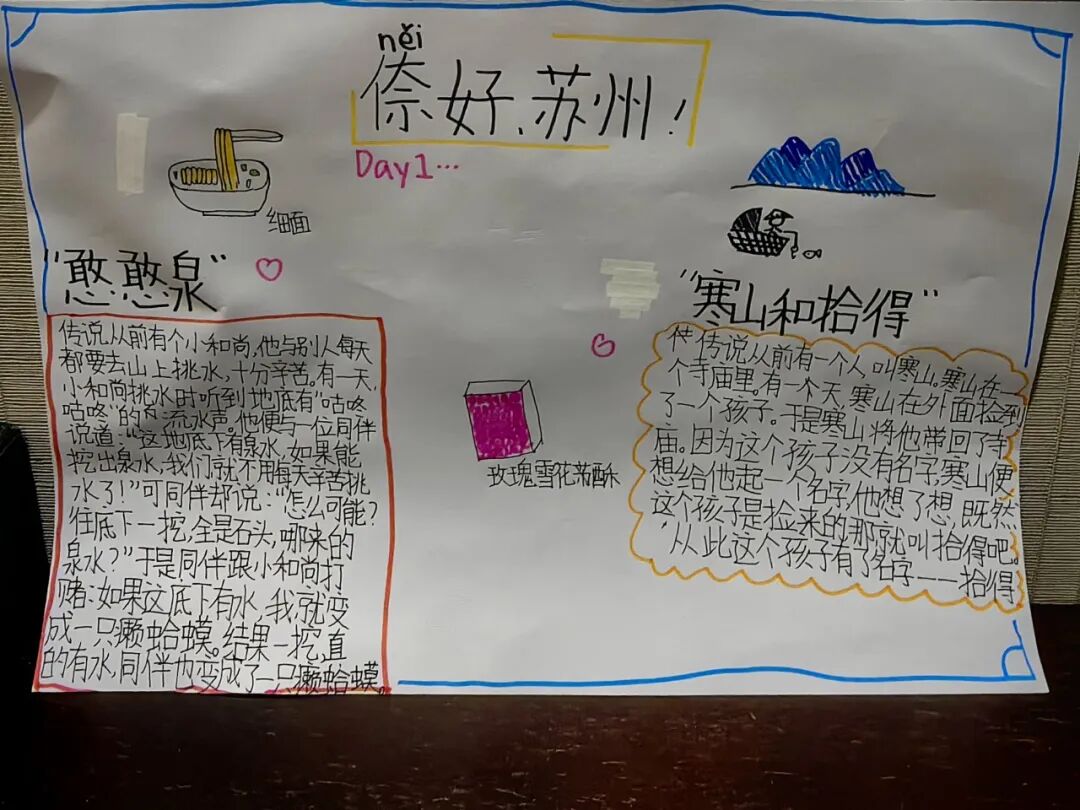 něi
倷好、苏州!
Day1…
细面
"憨憨泉"
传说从前有个小和尚,他与别人每天
都要去山上挑水,十分辛苦。有一天,
小和尚挑水时听到地底有"咕咚
咕咚"的流水声。他便与一位同伴
说道:"这地底下有泉水,如果能
挖出泉水,我们就不用每天辛苦挑
水了!"可同伴却说:"怎么可能?
往底下一挖,全是石头,哪来的
泉水?"于是同伴跟小和尚打
赌:如果这底下有水,我就变
成一只癞蛤蟆。结果一挖,真
的有水,同伴也变成了一只癞蛤蟆。
玫瑰雪花酥
"寒山和拾得"
传说从前有一个人,叫寒山。寒山在一
个寺庙里。有一个天寒山在外面捡到
了一个孩子。于是寒山将他带回了寺
庙。因为这个孩子没有名字,寒山便
想给他起一个名字,他想了想,既然
这个孩子是捡来的那就叫拾得吧。
从此这个孩子有了名字——拾得